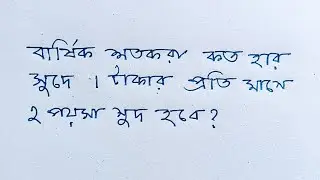 বার্ষিক শতকরা কত হার
সুদে 1 টাকার প্রতি মাসে
২ পয়সা সুদ হবে?